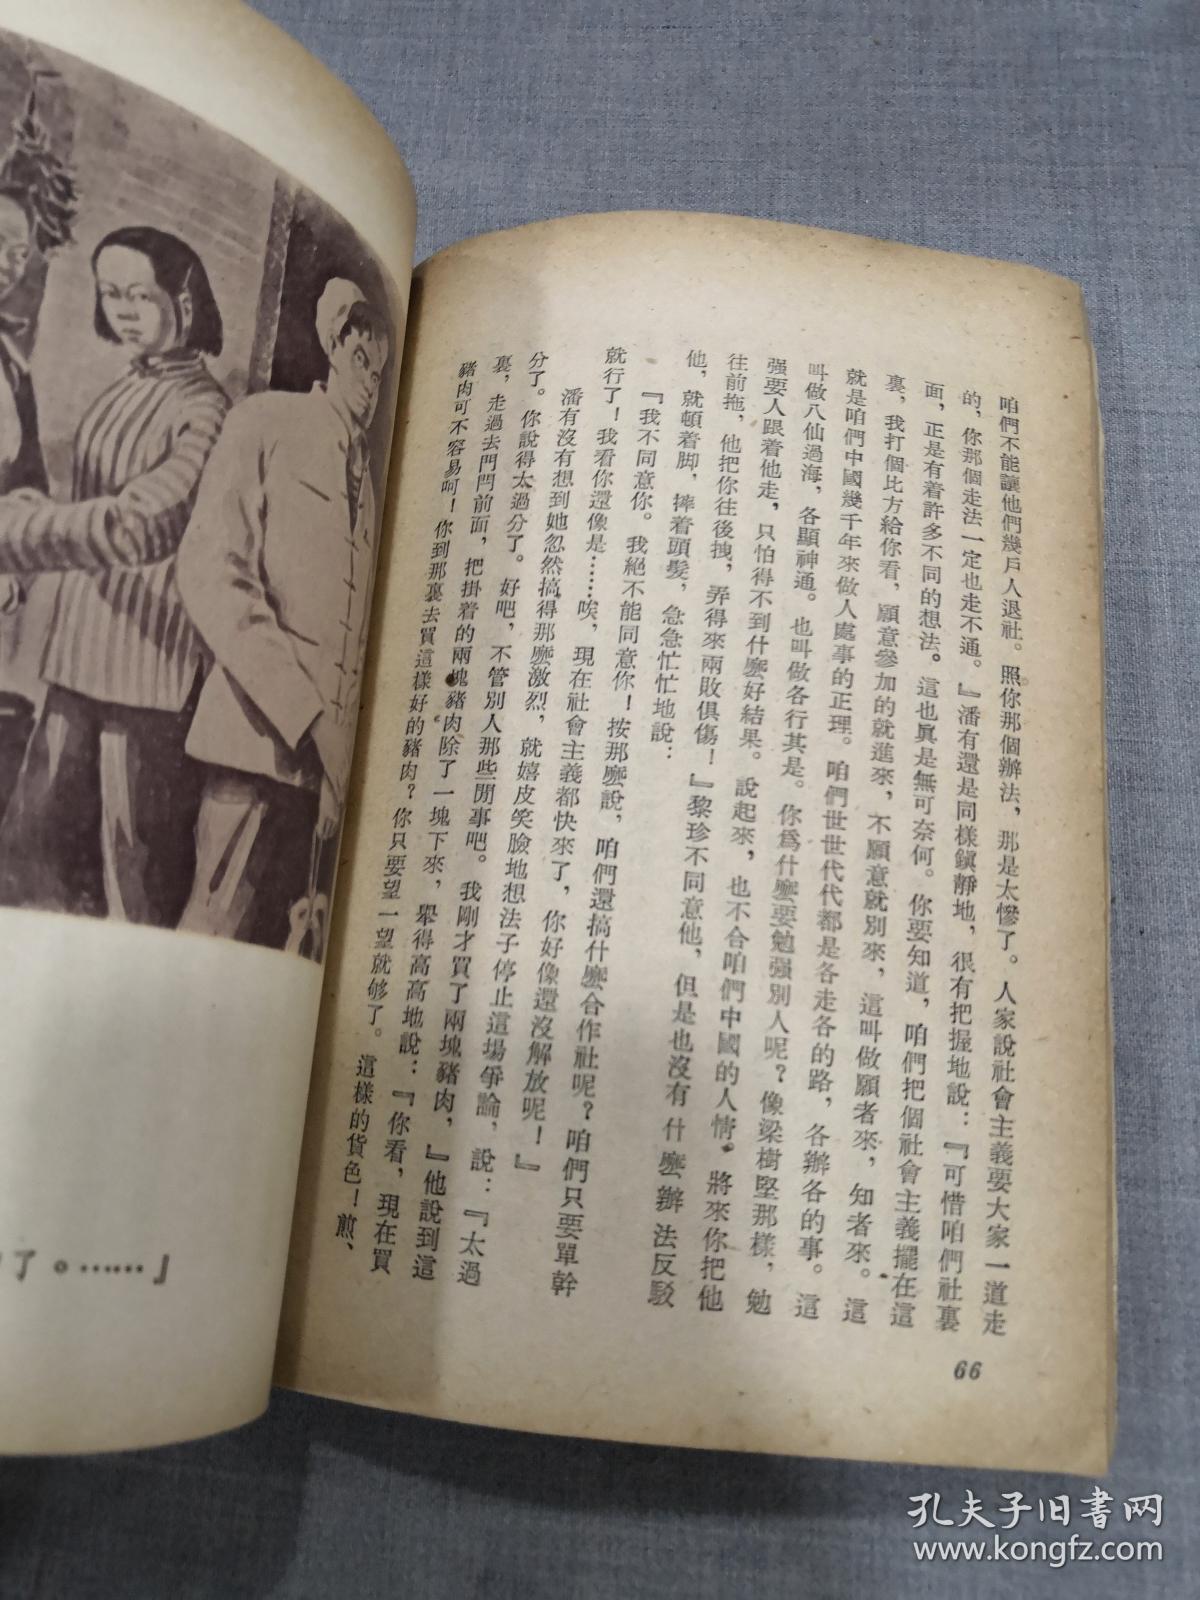 咱們不能讓他們幾戶人退社。照你那個辦法，那是太慘了。人家說社會主義要大家一道走
的，你那個走法一定也走不通。』潘有還是同樣鎮靜地，很有把握地說：『可惜咱們社裏
面，正是有着許多不同的想法。這也眞是無可奈何。你要知道，咱們把個社會主義擺在這
裏，我打個比方給你看，願意參加的就進來，不願意就別來，這叫做願者來，知者來。這
就是咱們中國幾千年來做人處事的正理。咱們世世代代都是各走各的路，各辦各的事。這
叫做八仙過海，各顯神通。也叫做各行其是。你爲什麽要勉强別人呢？像梁樹堅那樣，勉
强要人跟着他走，只怕得不到什麽好結果。說起來，也不合咱們中國的人情。將來你把他
往前拖，他把你往後拽，弄得來兩敗俱傷！』黎珍不同意他，但是也沒有什麽辦法反駁
他，就頓着脚，摔着頭髮，急急忙忙地說：
『我不同意你。我絕不能同意你！按那麽說，咱們還搞什麽合作社呢？咱們只要單幹
就行了！我看你還像是……唉，現在社會主義都快來了，你好像還沒解放呢！』
潘有沒有想到她忽然搞得那麽激烈，就嬉皮笑臉地想法子停止這場爭論，說：『太過
分了。你說得太過分了。好吧，不管別人那些閒事吧。我剛才買了兩塊豬肉，』他說到這
裏，走過去門閂前面，把掛着的兩塊豬肉除了一塊下來，舉得高高地說：『你看，現在買
豬肉可不容易呵！你到那裏去買這樣好的豬肉？你只要望一望就够了。這樣的貨色！煎、
66
了。……』
孔夫子旧書网
www.kongfz.com